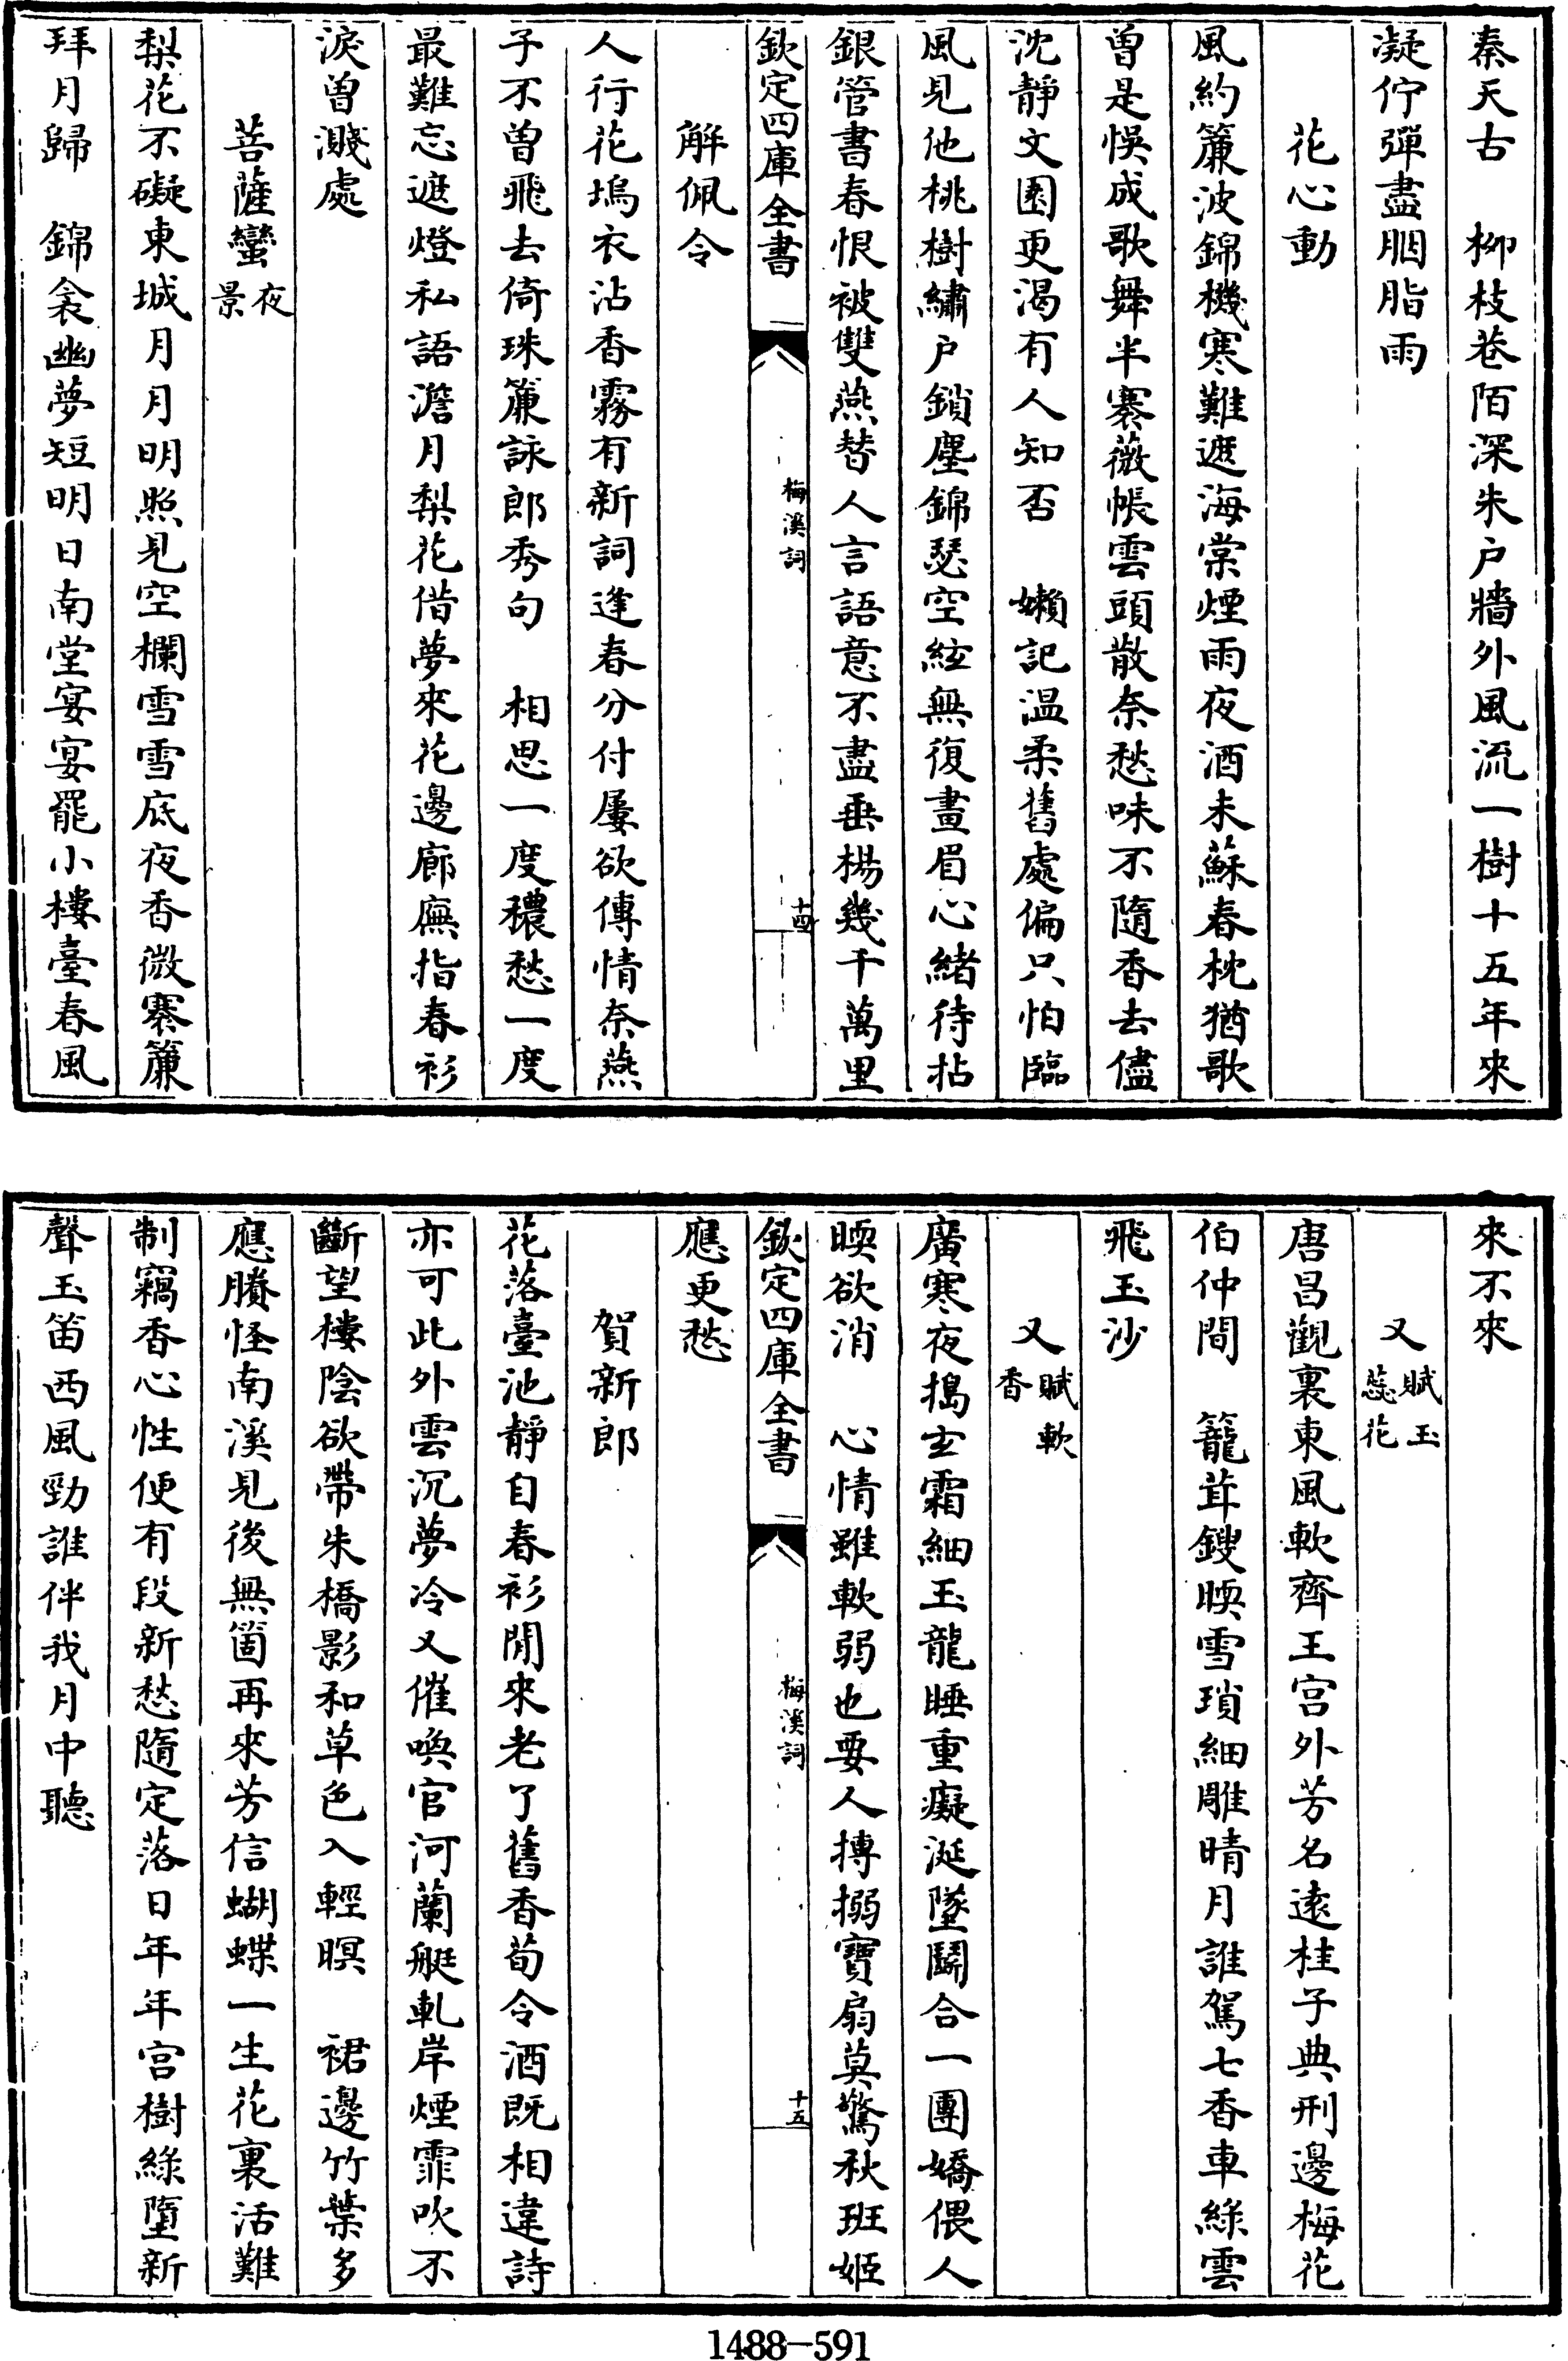 秦天古　柳枝巷陌深朱户牆外風流一樹十五年來
凝佇彈盡胭脂雨
花心動
風約簾波錦機寒難遮海棠煙雨夜酒未蘇春枕猶歌
曾是悞成歌舞半褰薇帳雲頭散奈愁味不隨香去儘
沈靜文園更渴有人知否　嬾記温柔舊處偏只怕臨
風見他桃樹繡户鎖塵錦瑟空絃無復畫眉心緒待拈
銀管書春恨被雙燕替人言語意不盡垂楊幾千萬里
欽定四庫全書　梅溪詞　十四
解佩令
人行花塢衣沾香霧有新詞逢春分付屢欲傳情奈燕
子不曾飛去倚珠簾詠郎秀句　相思一度穠愁一度
最難忘遮燈私語澹月梨花借夢來花邊廊廡指春衫
淚曾濺處
菩薩蠻夜景
梨花不礙東城月月明照見空欄雪雪底夜香微褰簾
拜月歸　錦衾幽夢短明日南堂宴宴罷小樓臺春風
來不來
又賦玉蕊花
唐昌觀裏東風軟齊王宫外芳名遠桂子典刑邊梅花
伯仲間　籠茸鎪暖雪瑣細雕晴月誰駕七香車綠雲
飛玉沙
又賦軟香
廣寒夜搗玄霜細玉龍睡重癡涎墜鬭合一團嬌偎人
暖欲消　心情雖軟弱也要人摶搦寶扇莫驚秋班姬
欽定四庫全書　梅溪詞　十五
應更愁
賀新郎
花落臺池靜自春衫閒來老了舊香荀令酒既相違詩
亦可此外雲沉夢冷又催喚官河蘭艇軋岸煙霏吹不
斷望樓陰欲帶朱橋影和草色入輕暝　裙邊竹葉多
應賸怪南溪見後無箇再來芳信蝴蝶一生花裏活難
制竊香心性便有段新愁隨定落日年年宫樹綠墮新
聲玉笛西風勁誰伴我月中聽
1488-591